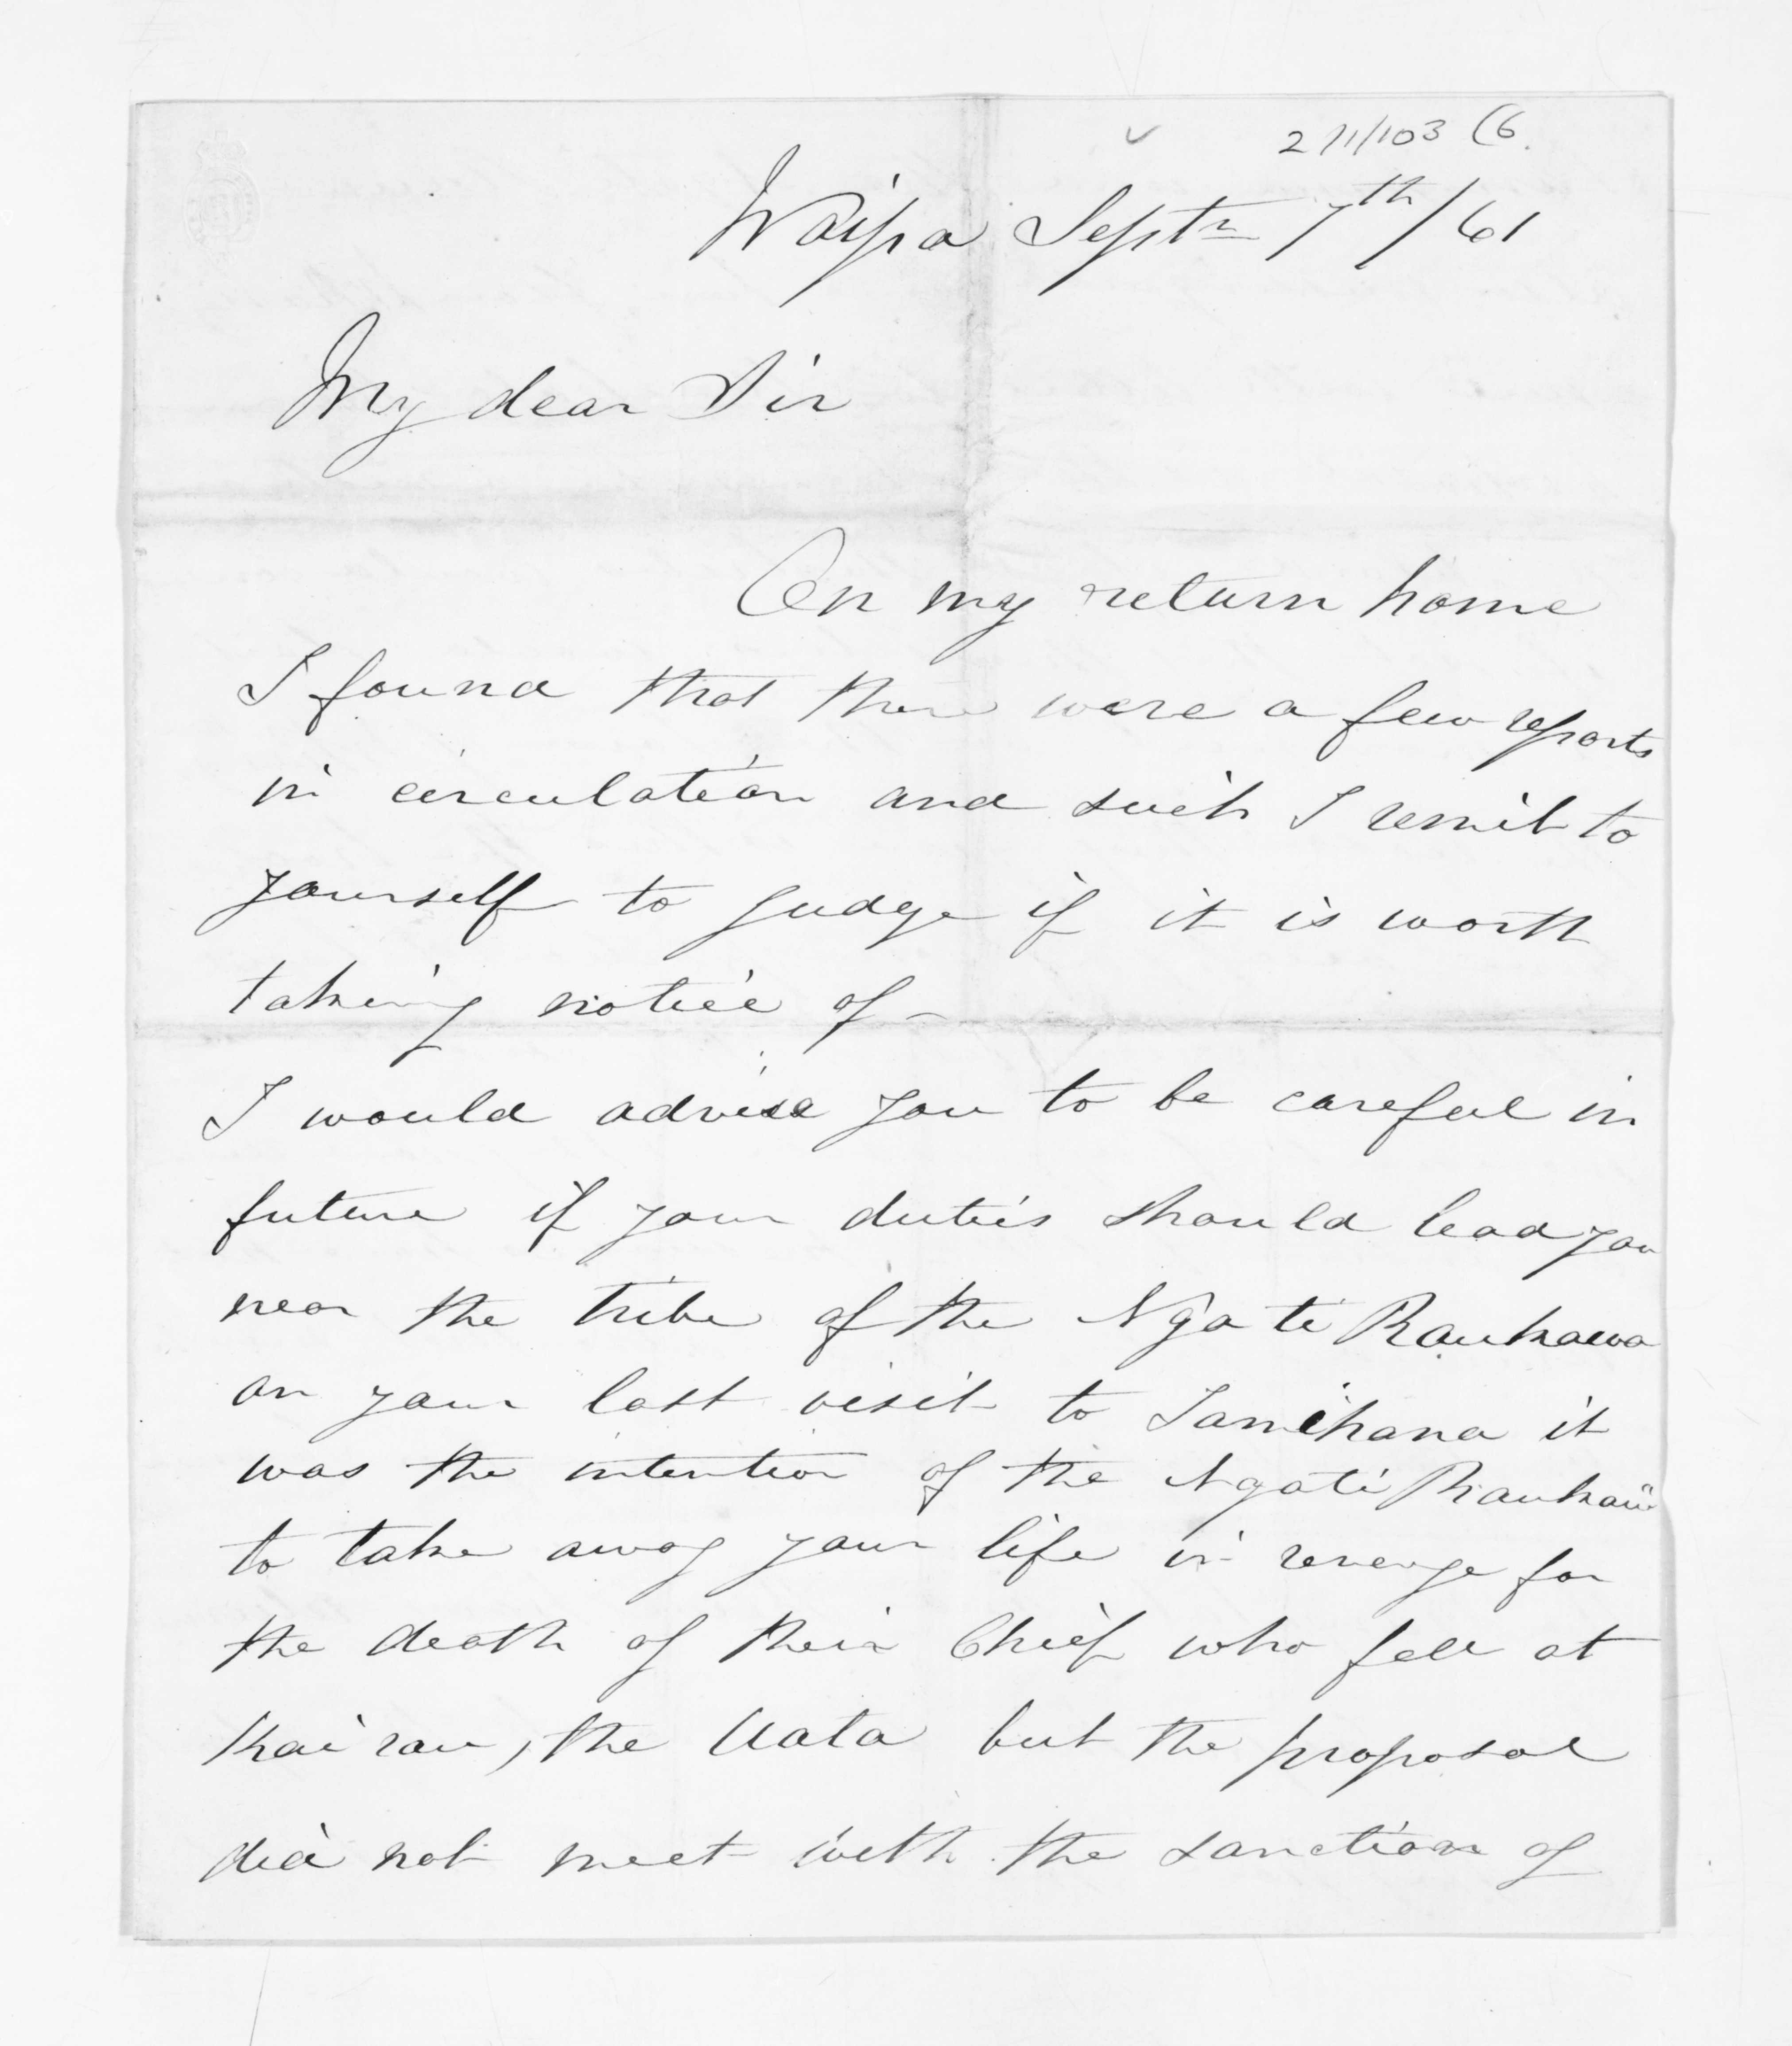 211/103 (6.
Waipa Septr 7th/61
My dear Sir
On my return home
I found that there were a few reports
in circulation and such I remit to
yourself to judge if it is worth
taking notice of -
I would advise you to be careful in
future if your duties should lead you
near the tribe of the Ngati Raukawa
on your last visit to Tamihana it
was the intention of the Ngati Raukawa
to take away your life in revenge for
the death of their Chief who fell at
Kairau, the Uata but the proposal
did not meet with the sanction of